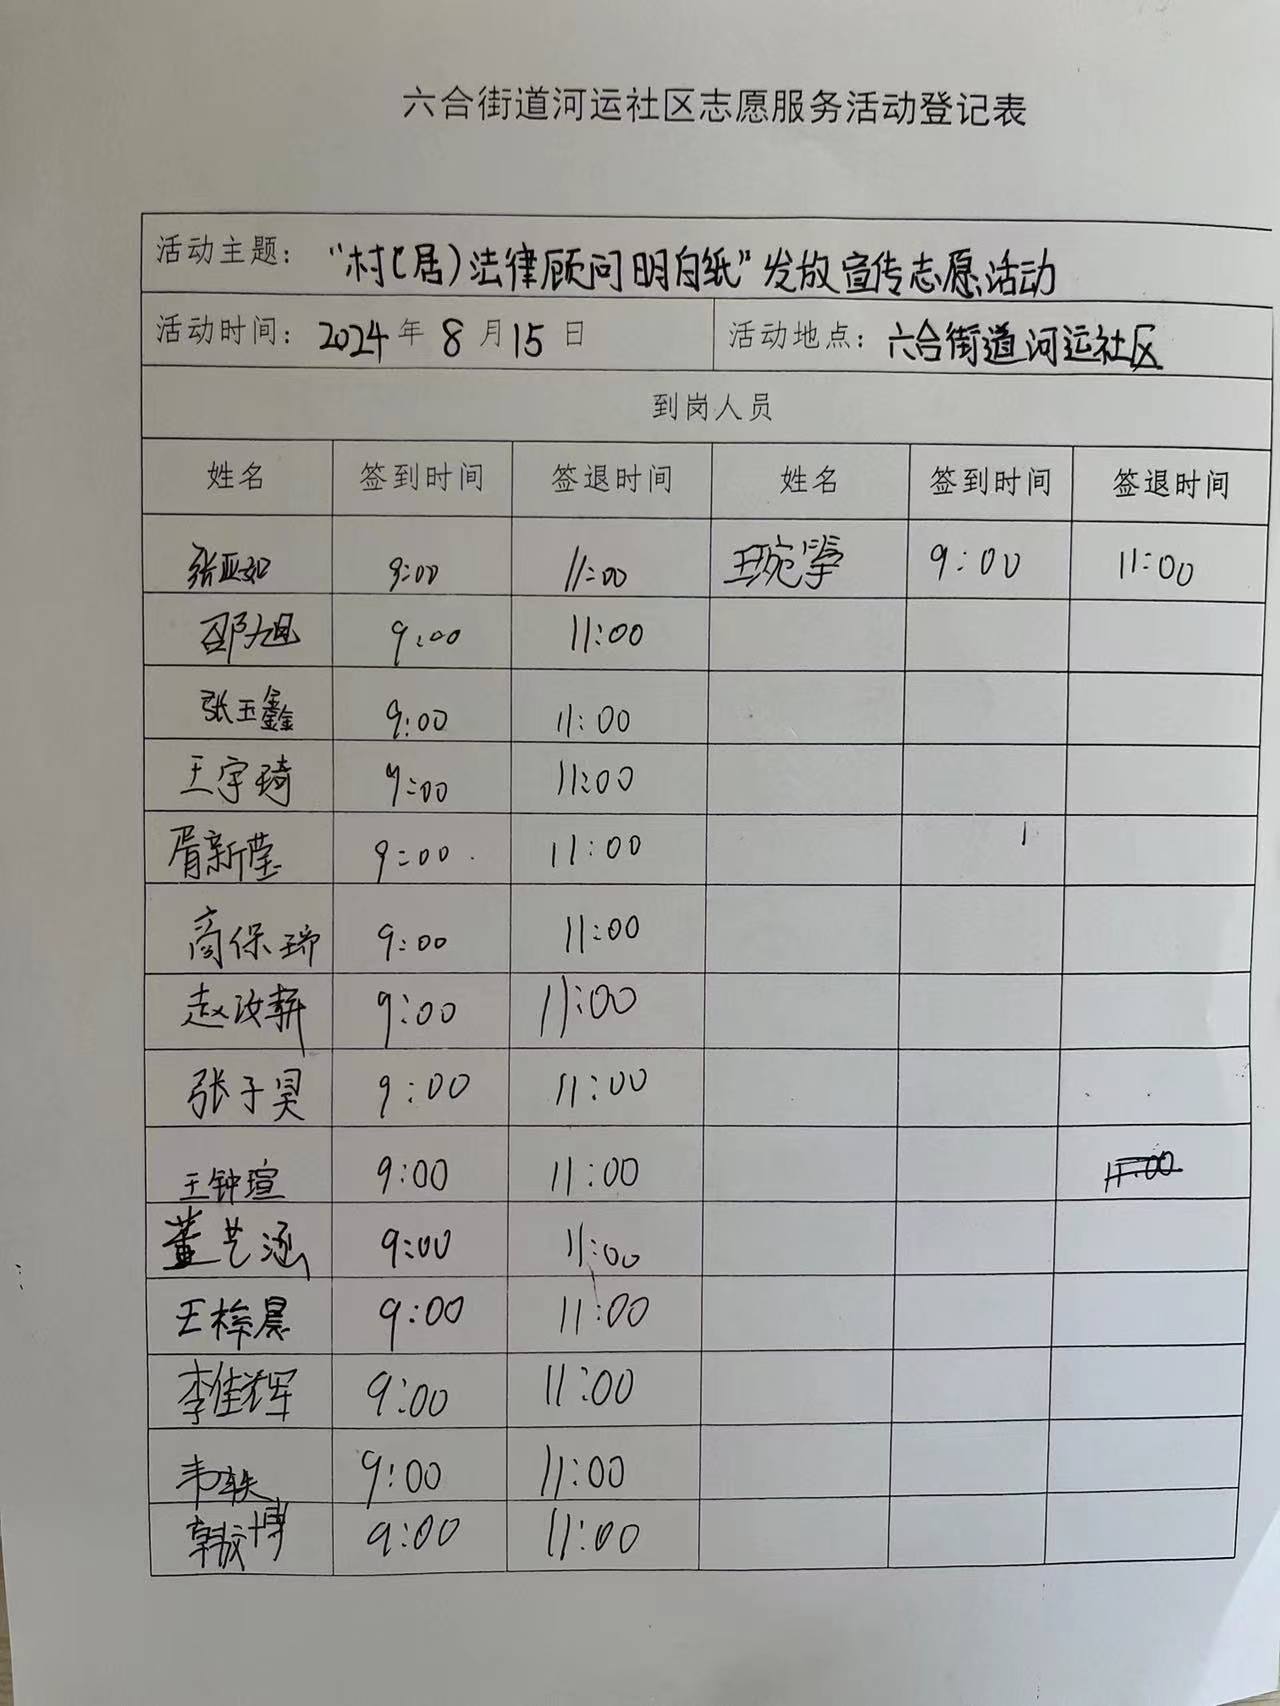 六合街道河运社区志愿服务活动登记表
活动主题： “村(居)法律顾问明白纸”发放宣传志愿活动
活动时间： 2024 年 8 月 15 日 活动地点： 六合街道河运社区
到岗人员
姓名 签到时间 签退时间 姓名 签到时间 签退时间
张亚如 9:00 11:00 9:00 11:00
邵旭 9:00 11:00
张玉鑫 9:00 11:00
王宇琦 9:00 11:00
胥新莹 9:00 11:00
商保瑞 9:00 11:00
赵汝骈 9:00 11:00
张子昊 9:00 11:00
王钟瑄 9:00 11:00 11:00
董艺涵 9:00 11:00
王梓晨 9:00 11:00
李佳辉 9:00 11:00
韦轶 9:00 11:00
韩文博 9:00 11:00